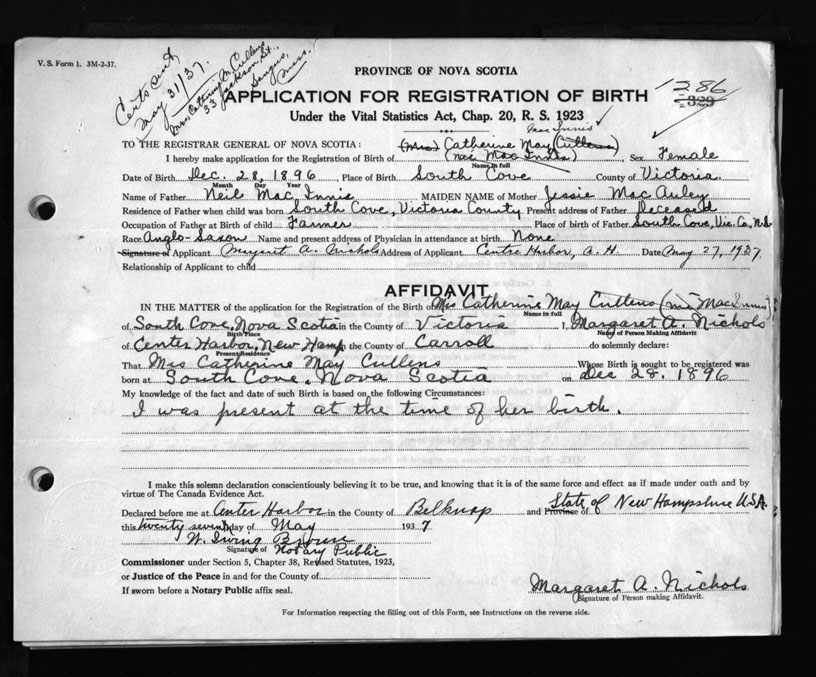 V. S. Form 1. 3M-2-37.
Certs sent
May 31/37.
Mrs Catherine M. Cullens
33 Jackson St.,
Saugus,
Mass.
PROVINCE OF NOVA SCOTIA
1286
329
APPLICATION FOR REGISTRATION OF BIRTH
Under the Vital Statistics Act, Chap. 20, R. S. 1923
Mac Innis
TO THE REGISTRAR GENERAL OF NOVA SCOTIA: (Mrs) Catherine May (Cullens)
I hereby make application for the Registration of Birth of (nee Mac Innis) Sex Female
Name in full
Date of Birth Dec. 28, 1896 Place of Birth South Cove County of Victoria
Month Day Year
Name of Father Neil Mac Innis MAIDEN NAME of Mother Jessie Mac Auley
Residence of Father when child was born South Cove, Victoria County Present address of Father Deceased
Occupation of Father at Birth of Child Farmer Place of birth of Father South Cove, Vic. Co, N.S.
Race Anglo-Saxon Name and present address of Physician in attendance at birth None
Signature of Applicant Margaret A. Nichols Address of Applicant Centre Harbor, N. H. Date May 27, 1937.
Relationship of Applicant to child
AFFIDAVIT
IN THE MATTER of the application for the Registration of the Birth of Mrs Catherine May Cullens (née MacInnis)
Name in full
of South Cove, Nova Scotia in the County of Victoria I, Margaret A. Nichols
Birth Place Name of Person Making Affidavit
of Center Harbor, New Hamp in the County of Carroll do solemnly declare:
Present Residence
That Mrs Catherine May Cullens Whose Birth is sought to be registered was
born at South Cove, Nova Scotia on Dec 28. 1896
My knowledge of the fact and date of such Birth is based on the following Circumstances:
I was present at the time of her birth.
I make this solemn declaration conscientiously believing it to be true, and knowing that it is of the same force and effect as if made under oath and by
virtue of The Canada Evidence Act.
Declared before me at Center Harbor in the County of Belknap and Province of State of New Hampshire U.S.A.
this twenty seventh day of May 1937
W. Irving Browne
Signature of Notary Public
Commissioner under Section 5, Chapter 38, Revised Statutes, 1923,
or Justice of the Peace in and for the County of
If sworn before a Notary Public affix seal.
Margaret A. Nichols
Signature of Person making Affidavit.
For Information respecting the filling out of this Form, see Instructions on the reverse side.